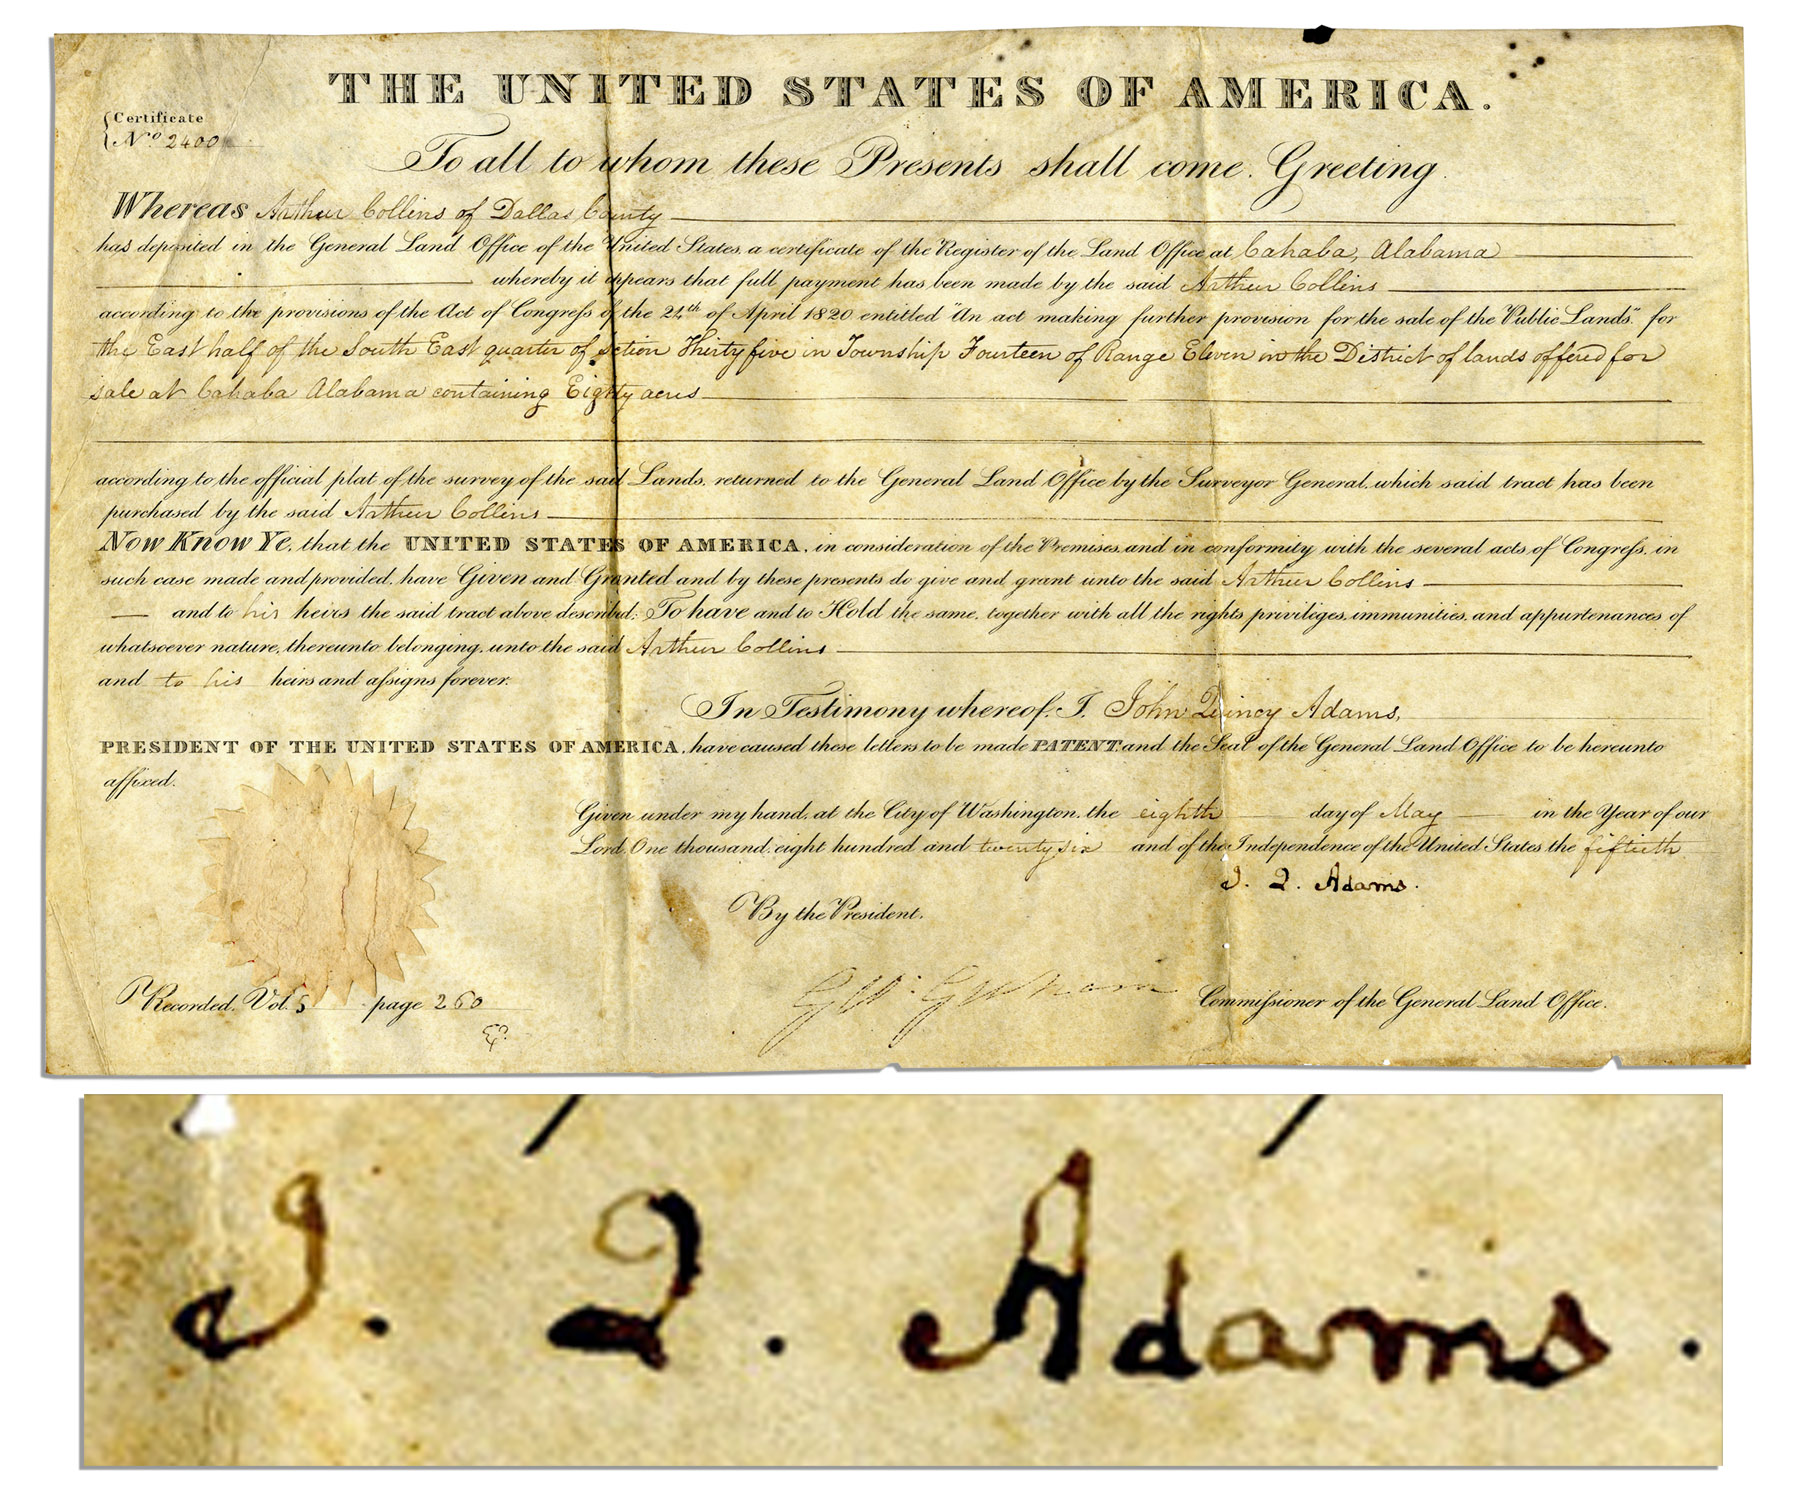 THE UNITED STATES OF AMERICA.
Certificate
No. 2400
To all to whom these Presents shall come. Greeting.
Whereas Arthur Collins of Dallas County
has deposited in the General Land Office of the United States, a certificate of the Register of the Land Office at Cahaba, Alabama
whereby it appears that full payment has been made by the said Arthur Collins
according to the provisions of the Act of Congress of the 24th of April 1820 entitled "An act making further provision for the sale of the Public Lands." for
the East half of the South East quarter of section Thirty five in Township Fourteen of Range Eleven in the District of lands offered for
sale at Cahaba Alabama containing Eighty acres
according to the official plat of the survey of the said Lands, returned to the General Land Office by the Surveyor General, which said tract has been
purchased by the said Arthur Collins
Now Know Ye, that the UNITED STATES OF AMERICA, in consideration of the Premises, and in conformity with the several acts of Congress, in
such case made and provided, have Given and Granted and by these presents do give and grant unto the said Arthur Collins
and to his heirs the said tract above described: To have and to Hold the same, together with all the rights, priviliges, immunities, and appurtenances of
whatsoever nature, thereunto belonging, unto the said Arthur Collins
and to his heirs and assigns forever.
In Testimony whereof, I, John Quincy Adams,
PRESIDENT OF THE UNITED STATES OF AMERICA, have caused these letters to be made PATENT, and the Seal of the General Land Office to be hereunto
affixed.
Given under my hand, at the City of Washington, the eighth day of May in the Year of our
Lord, One thousand, eight hundred and twenty six and of the Independence of the United States the fiftieth
J. Q. Adams.
By the President,
Commissioner of the General Land Office.
Recorded, Vol. 5 page 260
J. Q. Adams.